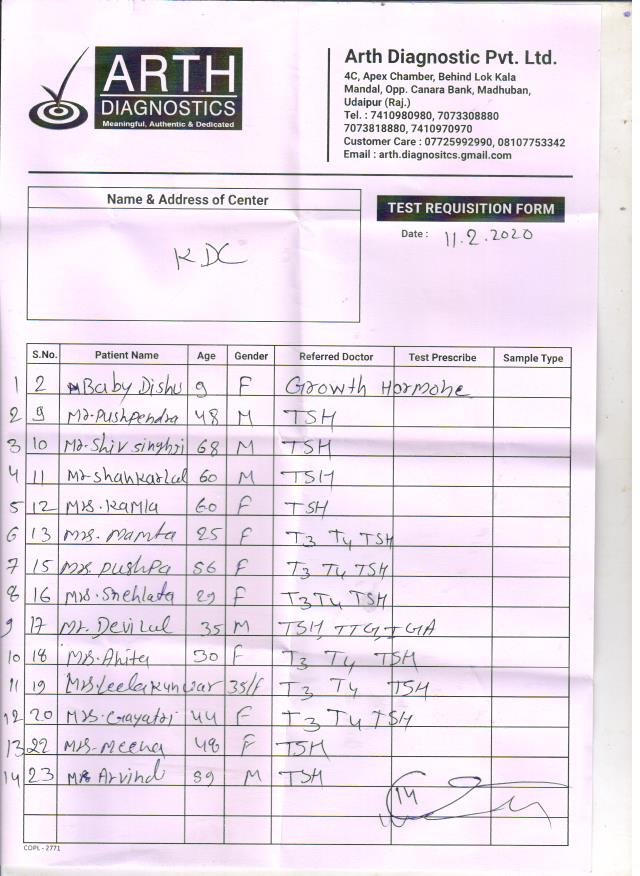 ARTH
DIAGNOSTICS
Meaningful, Authentic & Dedicated
Arth Diagnostic Pvt. Ltd.
4C, Apex Chamber, Behind Lok Kala
Mandal, Opp. Canara Bank, Madhuban,
Udaipur (Raj.)
Tel. : 7410980980, 7073308880
7073818880, 7410970970
Customer Care : 07725992990, 08107753342
Email : arth.diagnositcs.gmail.com
Name & Address of Center
KDC
TEST REQUISITION FORM
Date : 11.2.2020
S.No. Patient Name Age Gender Referred Doctor Test Prescribe Sample Type
1 2 Baby Dishu 9 F Growth Hormone
2 9 Mr. Pushpendra 48 M TSH
3 10 Mr. Shiv singhji 68 M TSH
4 11 Mr Shankarlal 60 M TSH
5 12 Mrs. Kamla 60 F TSH
6 13 Mrs. Mamta 25 F T3 T4 TSH
7 15 Mrs. Pushpa 56 F T3 T4 TSH
8 16 Mrs. Snehlata 29 F T3 T4 TSH
9 17 Mr. Devilal 35 M TSH, TTG, IGA
10 18 Mrs. Anita 30 F T3 T4 TSH
11 19 Mrs Leela Kunwar 35/F T3 T4 TSH
12 20 Mrs. Gayatri 44 F T3 T4 TSH
13 22 Mrs. Meena 48 F TSH
14 23 Arvind 39 M TSH
14
COPL - 2771